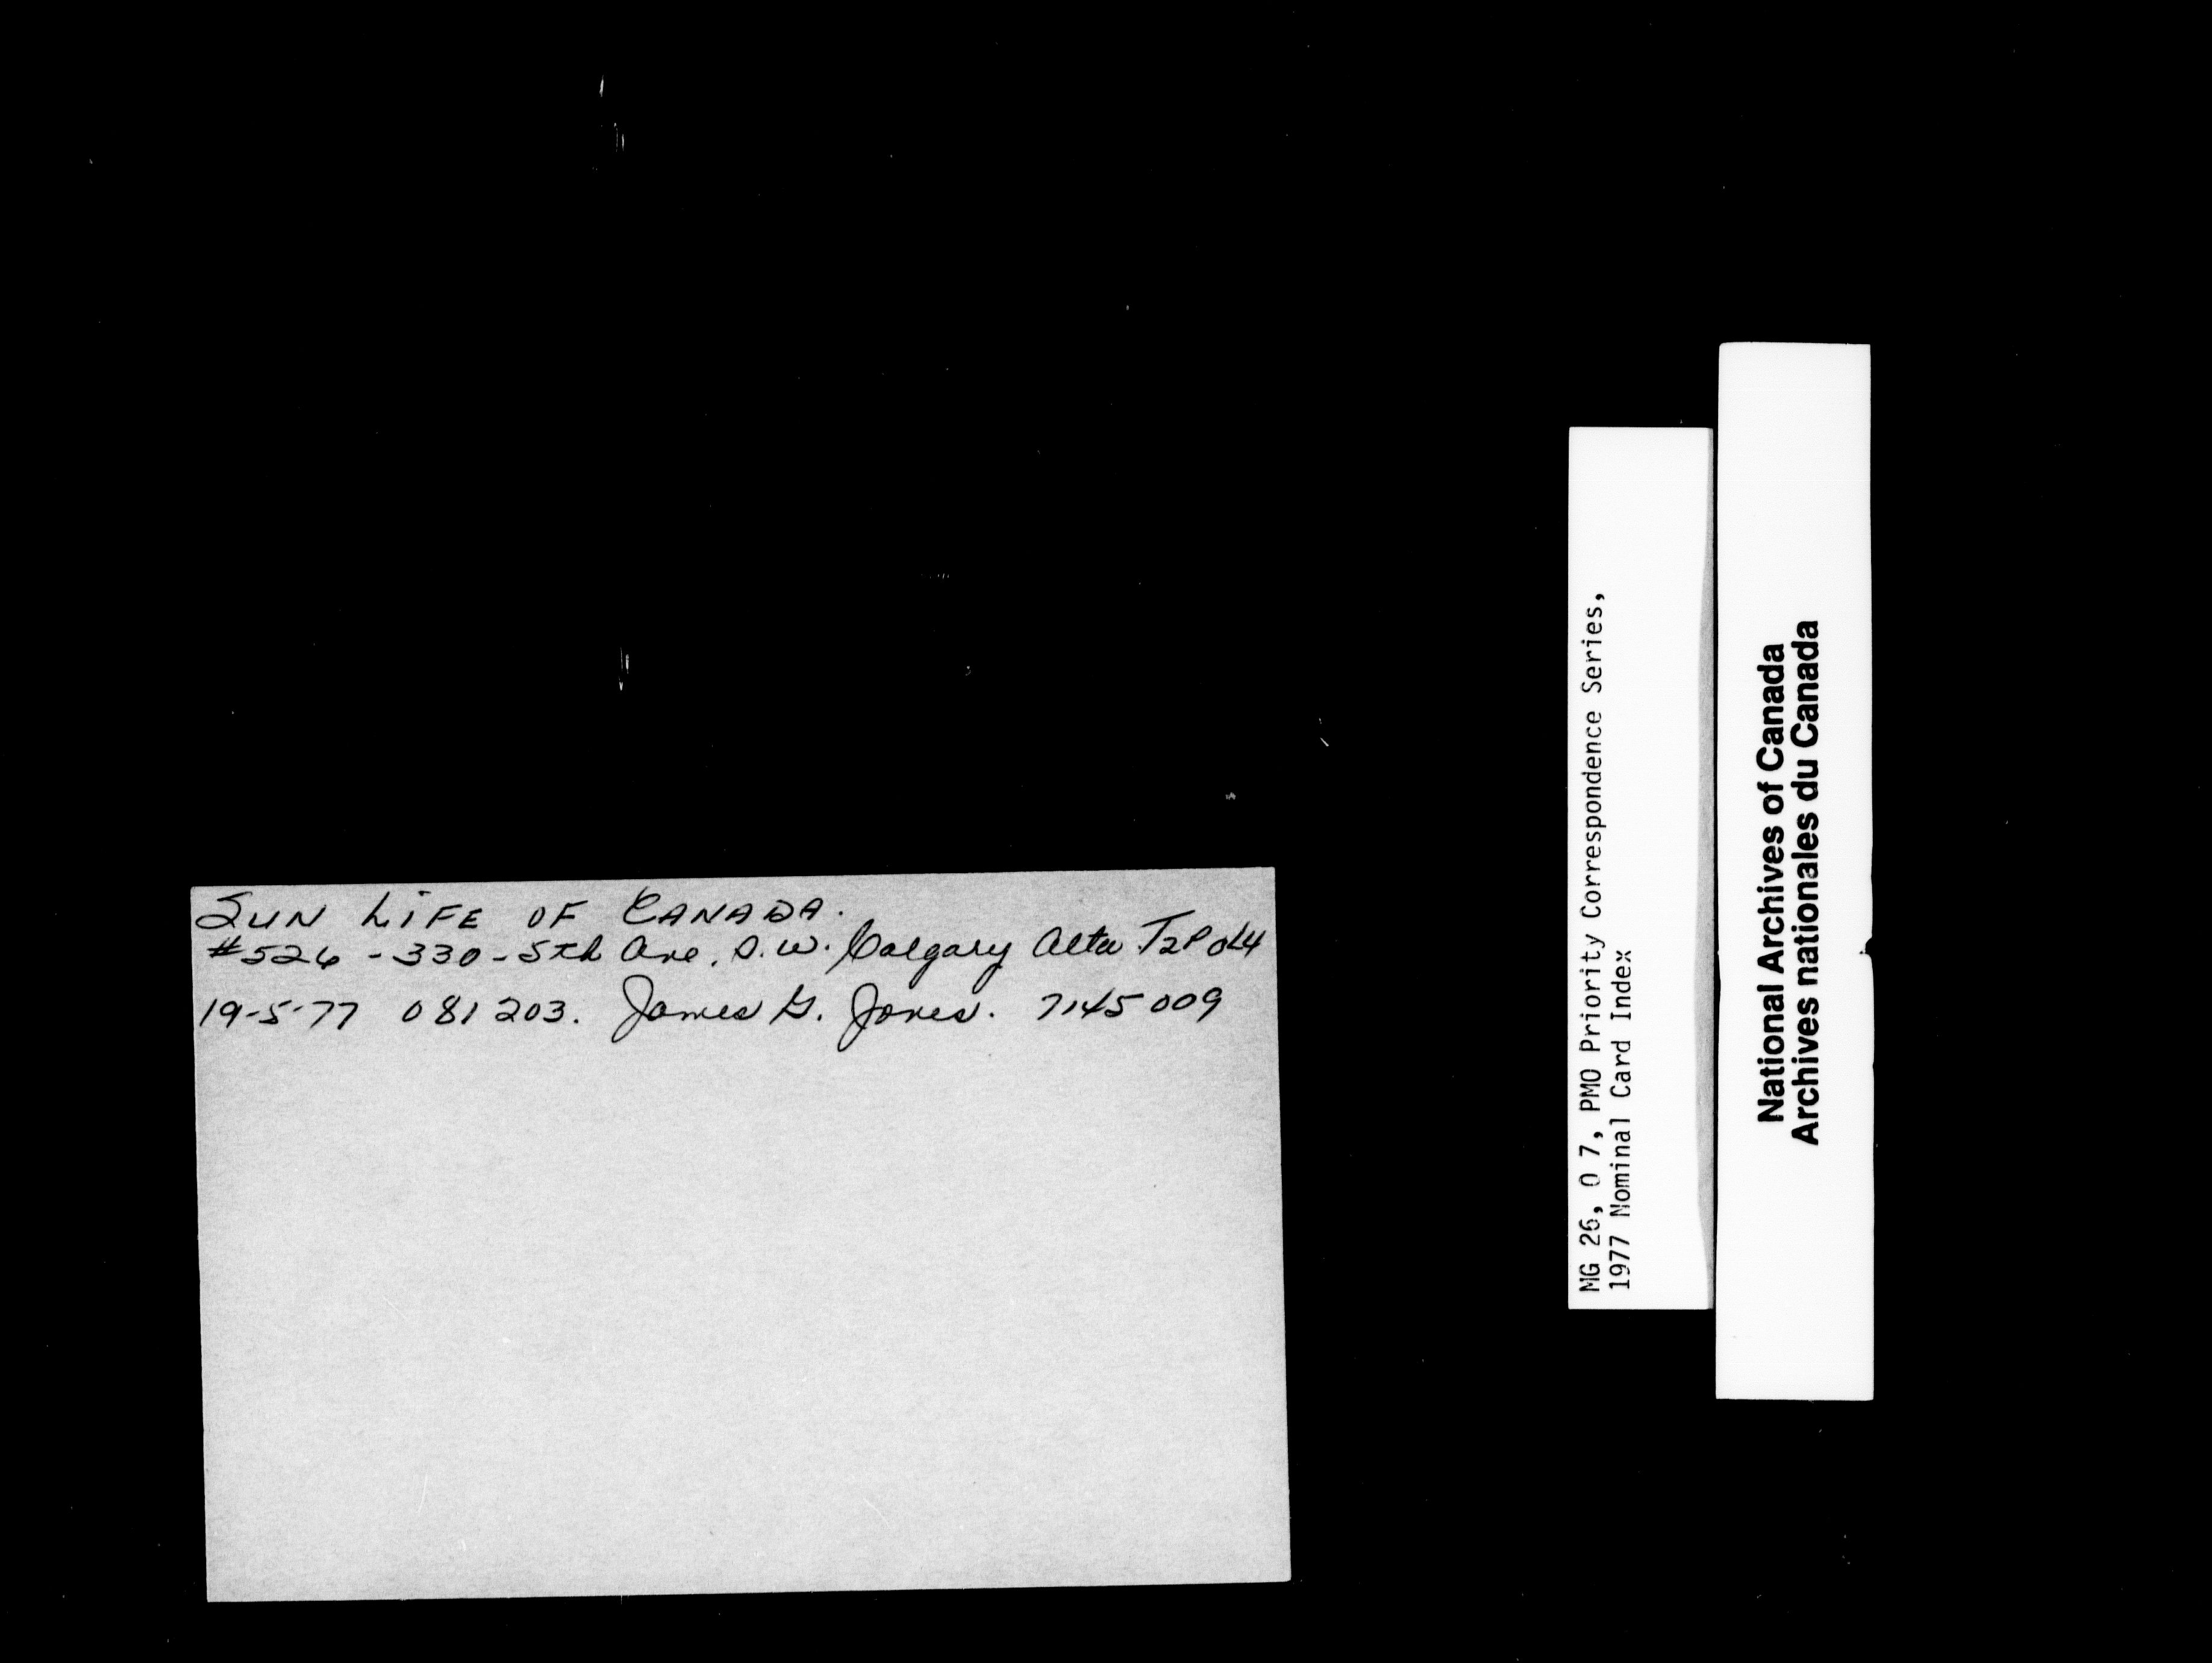 SUN LiFE OF CANADA.
#526 - 330 - 5th Ave. S.W. Calgary Alta T2P 0L4
19-5-77 081203. James G. Jones. 7145009
MG 26, O 7, PMO Priority Correspondence Series,
1977 Nominal Card Index
National Archives of Canada
Archives nationales du Canada